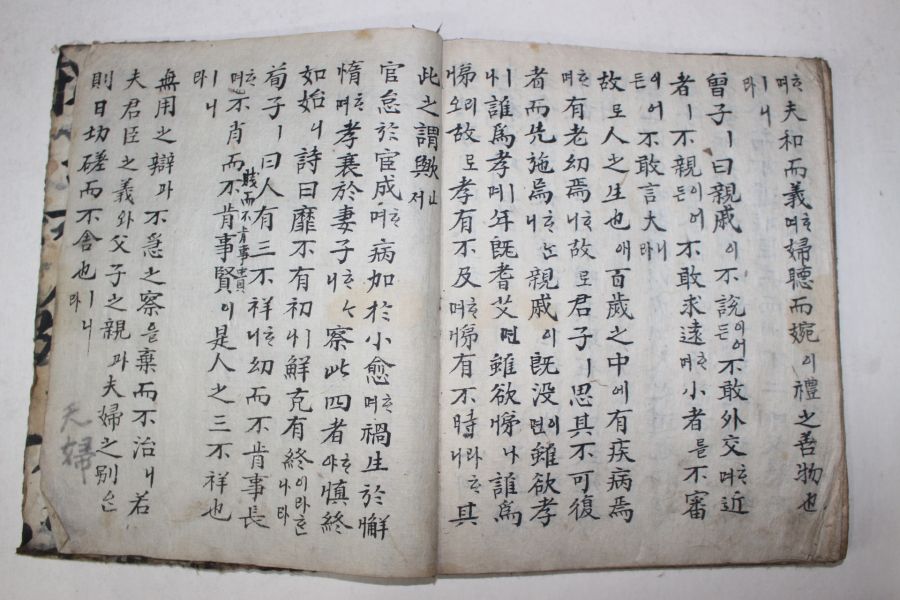 ᄒᆞ며夫和而義ᄒᆞ며婦聽而婉이禮之善物也
ㅣ니라
曾子ㅣ曰親戚이不說이어든不敢外交ᄒᆞ며近
者ㅣ不親이어든不敢求遠ᄒᆞ며小者를不審
이어든不敢言大니라
故로人之生也애百歲之中에有疾病焉
ᄒᆞ며有老幼焉ᄒᆞ니故로君子ㅣ思其不可復
者而先施焉ᄒᆞᄂᆞ니親戚이旣没이면雖欲孝
ㅣ나誰爲孝ㅣ며年旣耆艾면雖欲悌나誰爲
悌리오故로孝有不及ᄒᆞ며悌有不時ᄒᆞ라니其
此之謂歟ㄴ저
官怠於宦成ᄒᆞ며病加於小愈ᄒᆞ며禍生於懈
惰ᄒᆞ며孝衰於妻子ᄒᆞᄂᆞ니察此四者ᄒᆞ야愼終
如始니詩曰靡不有初ㅣ나鮮克有終이라ᄒᆞ니라
荀子ㅣ曰人有三不祥ᄒᆞ니幼而不肯事長
ᄒᆞ며賤而不肯事貴不肖而不肯事賢이是人之三不祥也
ㅣ니라
無用之辯과不急之察을棄而不治니若
夫君臣之義와父子之親과夫婦之別은
則日切磋而不舍也ㅣ니라